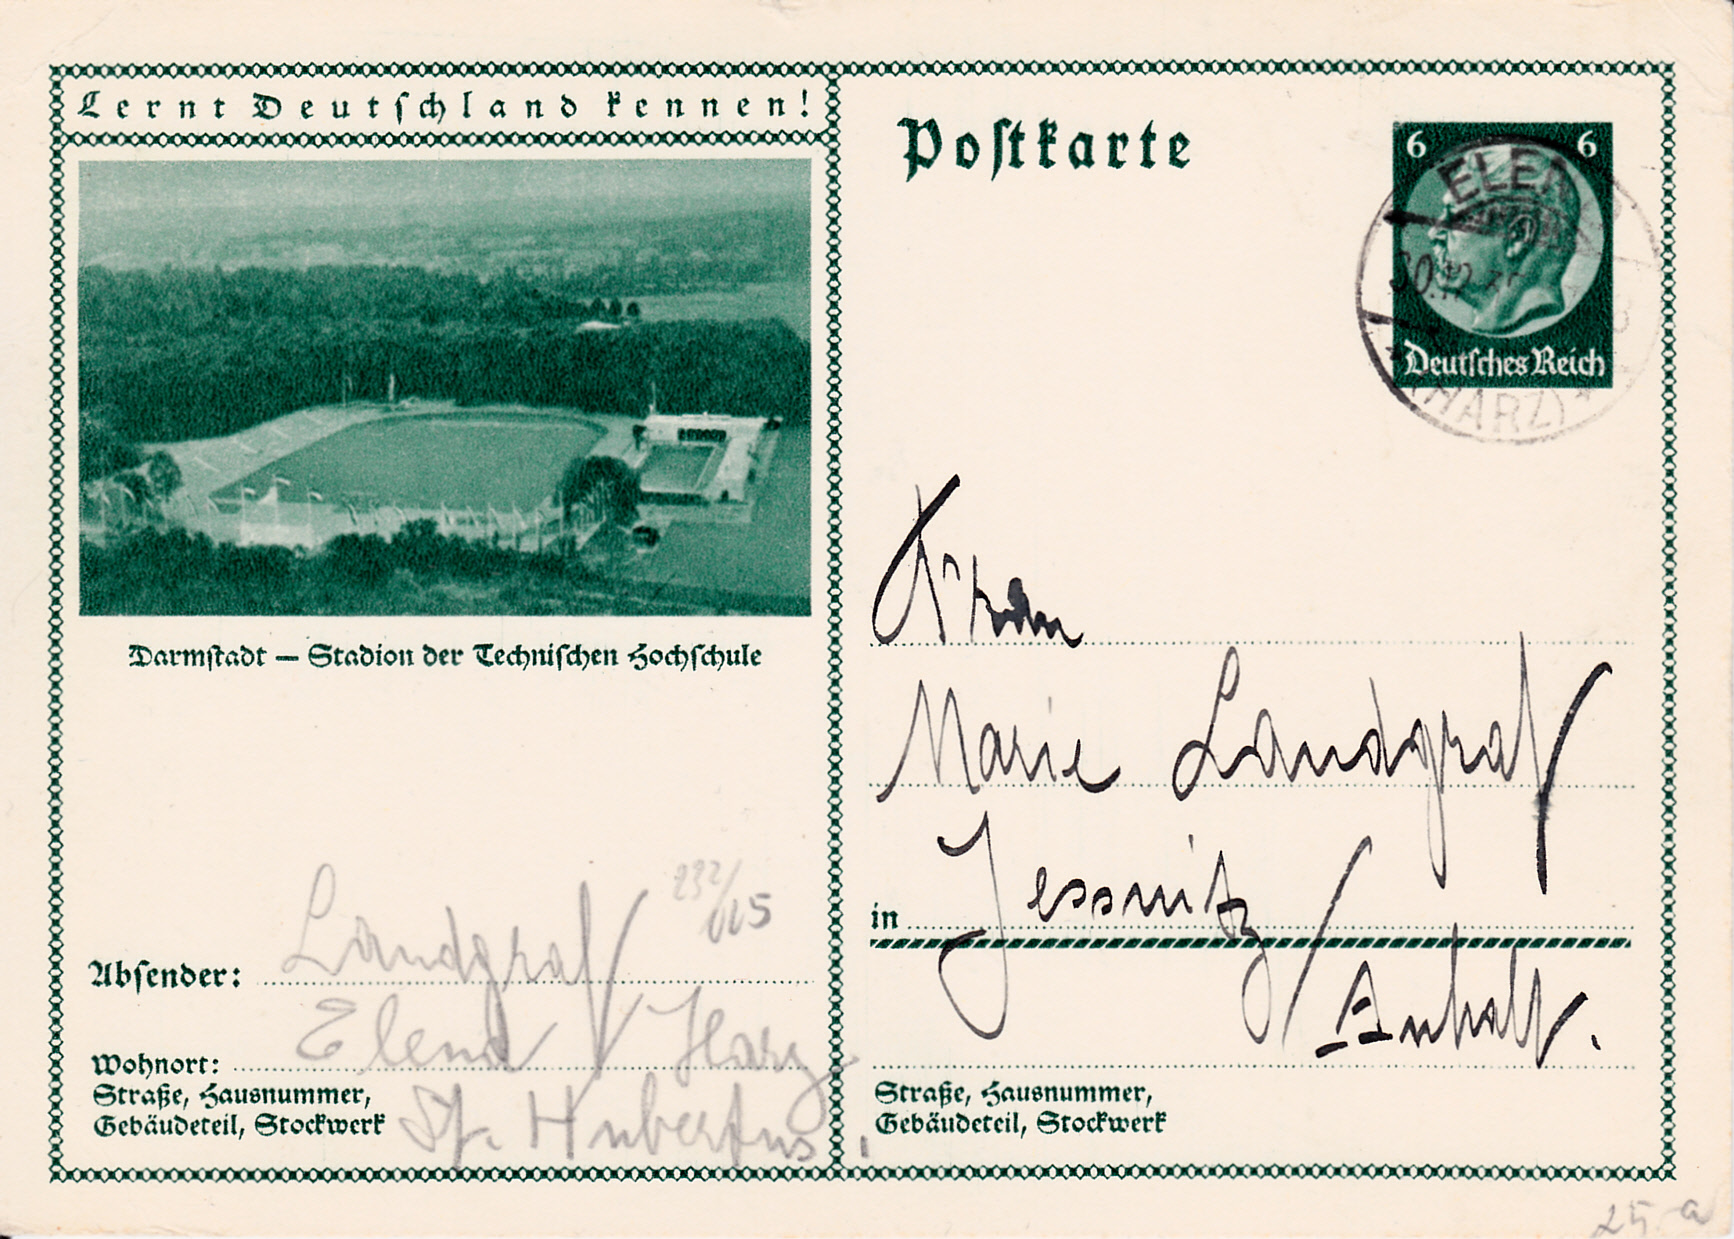 Lernt Deutschland kennen!
Postkarte
6 6
ELEND
30.12.
Deutsches Reich
(HARZ)
Darmstadt — Stadion der Technischen Hochschule
Marie Landgraf
in Jessnitz/
Anhalt.
232/
Absender: Landgraf
Wohnort: Elend/Harz
Straße, Hausnummer,
Gebäudeteil, Stockwerk
St. Hubertus.
Straße, Hausnummer,
Gebäudeteil, Stockwerk
25 a